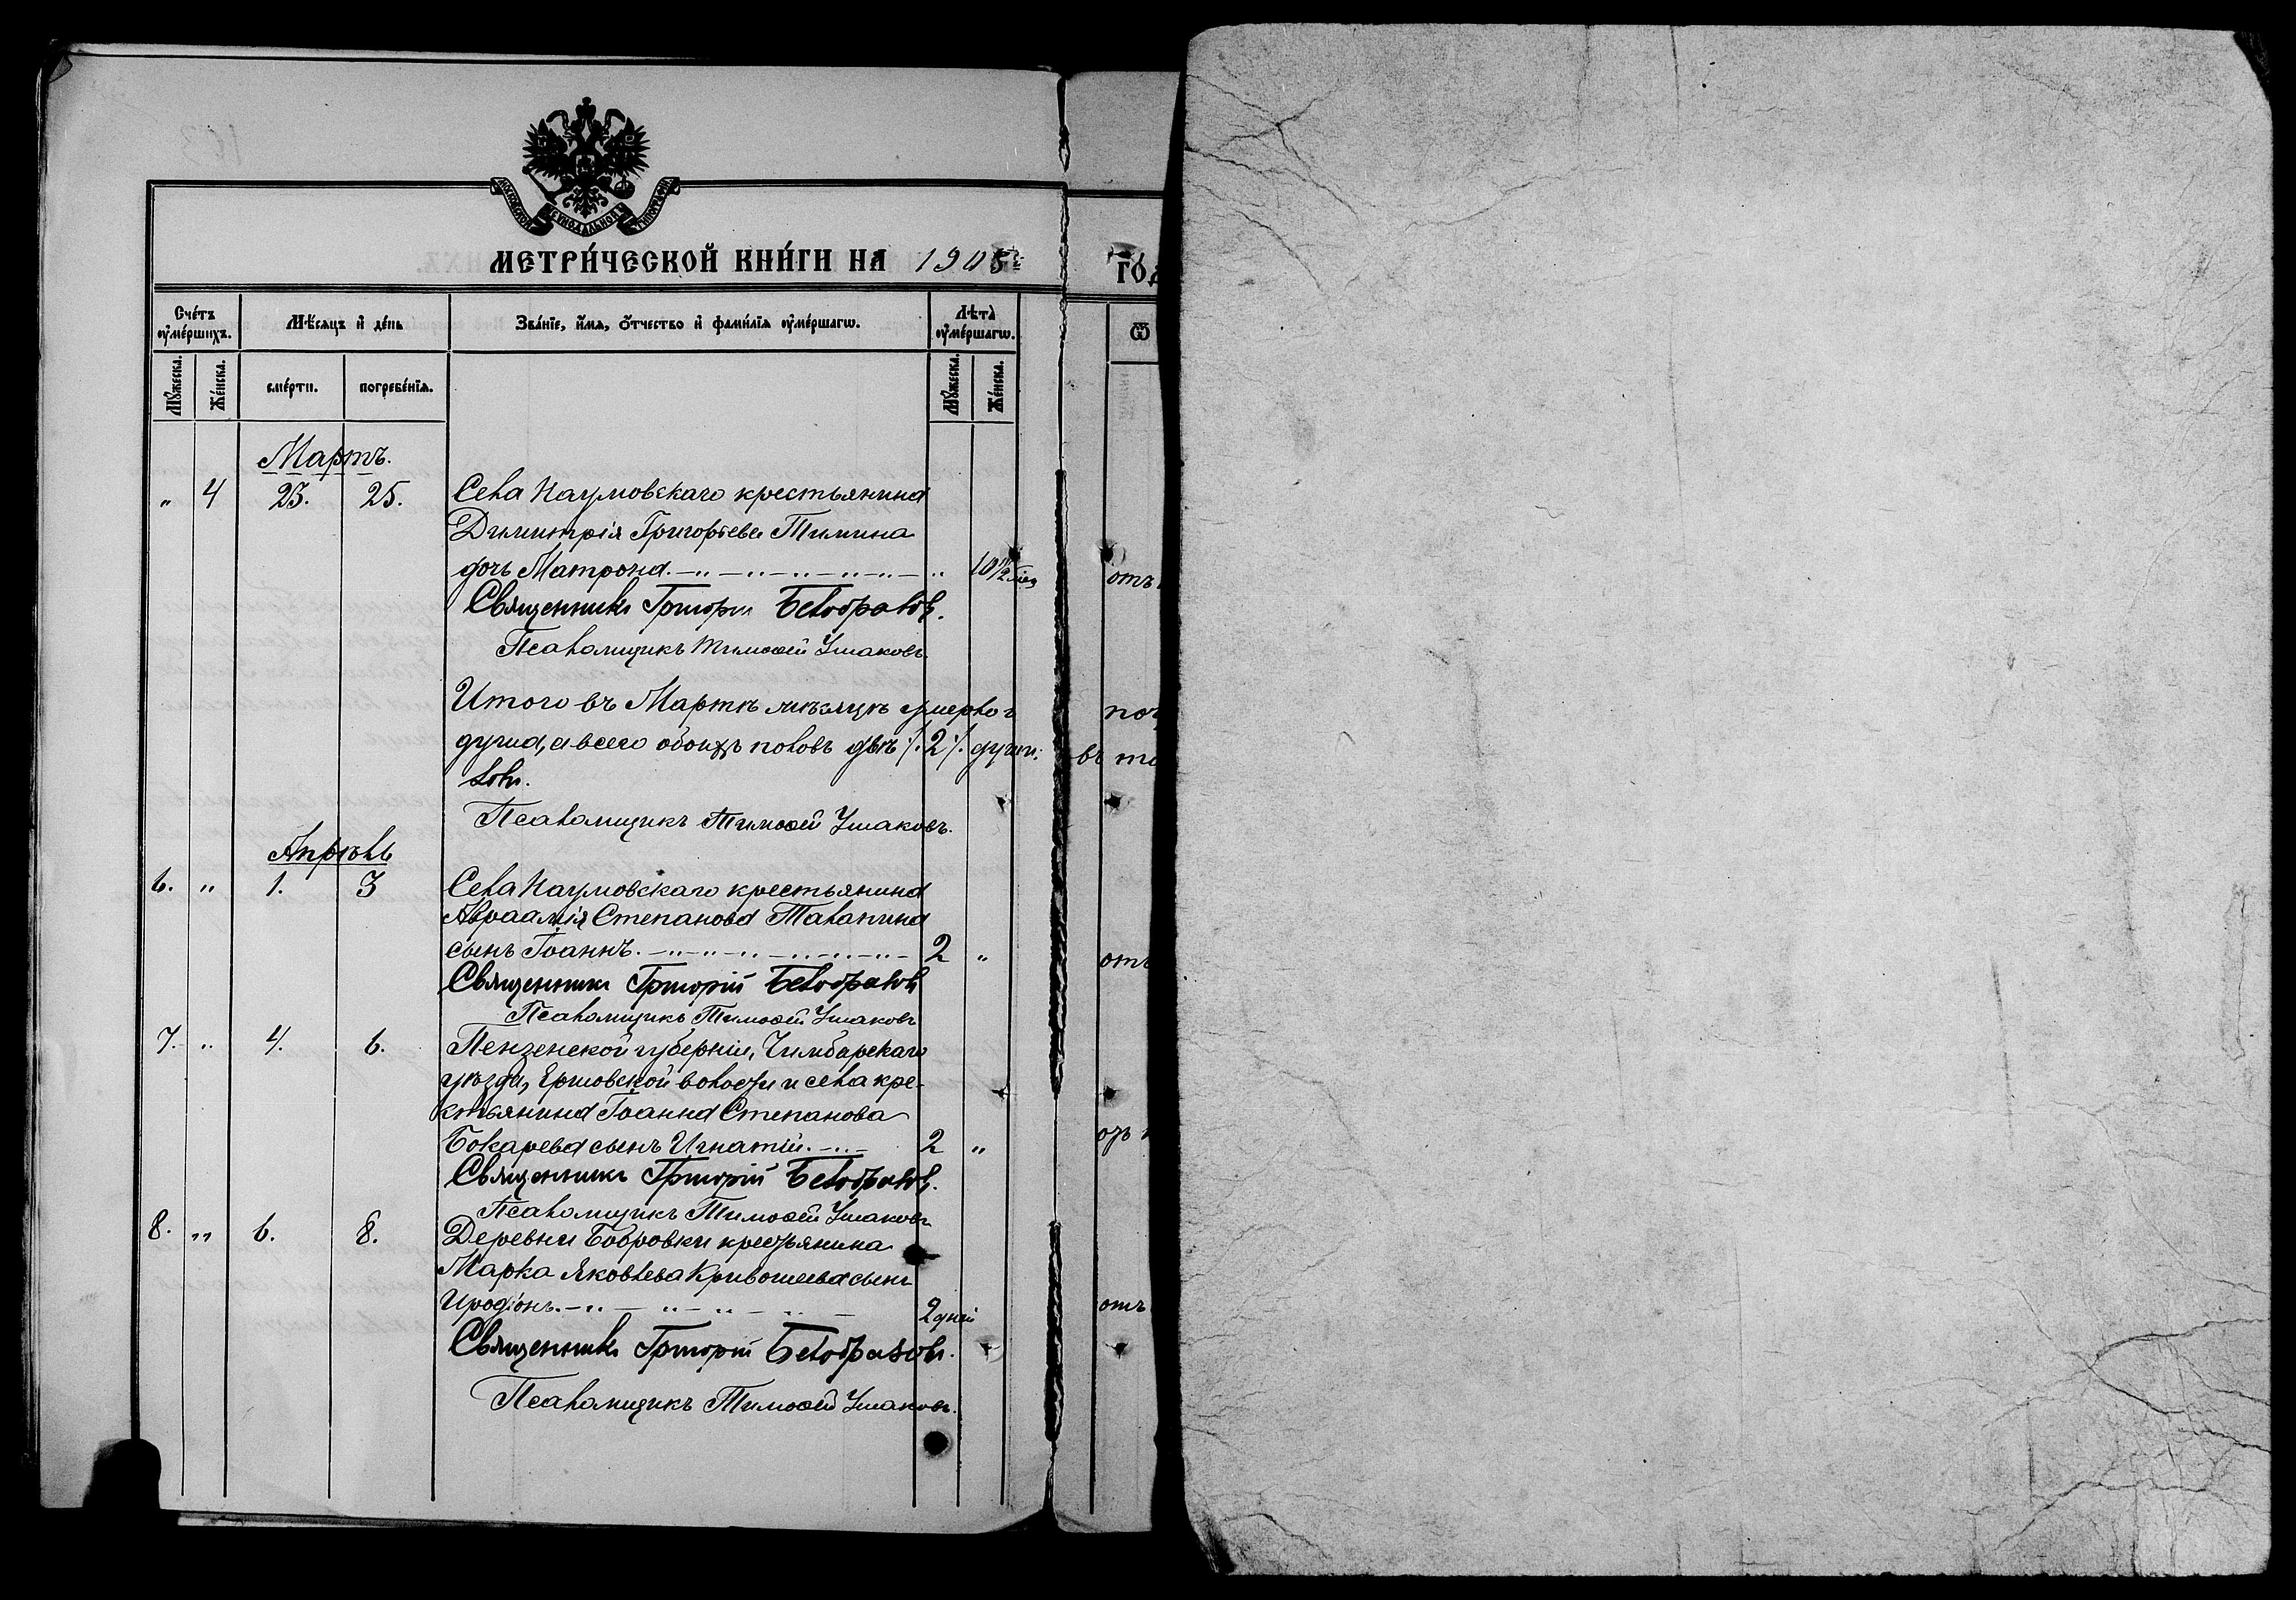 МОСКОВСКОЙ СѴНОДАЛЬНОЙ ТИПОГРАФІИ
МЕТРИ́ЧЕСКОЙ КНИ́ГИ НА 1905 ГО́Д
Сче́тъ оумершихъ.
Мѣ́сѧцъ и де́нь
Зва́нїе, и́мѧ, ѻ́тчество и фами́лїѧ оуме́ршагѡ.
Лѣта̀ оуме́ршагѡ.
Ѿ
Мꙋжеска.
Же́нска.
сме́рти.
погребе́нїѧ.
Мꙋжеска.
Же́нска.
Мартъ.
„ 4 23. 25. Села Наумовскаго крестьянина
Димитрія Григорьева Тимина
дочь Матрона. „ 10½ отъ
Священникъ Григорій Белобразовъ.
Псаломщикъ Тимоѳей Ушаковъ.
Итого въ Мартѣ мѣсяцѣ умерло
душа, а всего обоихъ половъ двѣ ./. 2 ./. души. въ
Псаломщикъ Тимоѳей Ушаковъ.
Апрѣль
6. „ 1. 3 Села Наумовскаго крестьянина
Авраамія Степанова Талапина
сынъ Іоаннъ. 2 „ отъ
Священникъ Григорій Белобразовъ
Псаломщикъ Тимоѳей Ушаковъ
7. „ 4. 6. Пензенской губерніи, Чембарскаго
уѣзда, Ершовской волости и села кре-
стьянина Іоанна Степанова
Бокарева сынъ Игнатій. 2 „
Священникъ Григорій Белобразовъ.
Псаломщикъ Тимоѳей Ушаковъ
8. „ 6. 8. Деревни Бобровки крестьянина
Марка Яковлева Кривошеева сынъ
Иродіонъ. 2 дней отъ
Священникъ Григорій Белобразовъ.
Псаломщикъ Тимоѳей Ушаковъ.